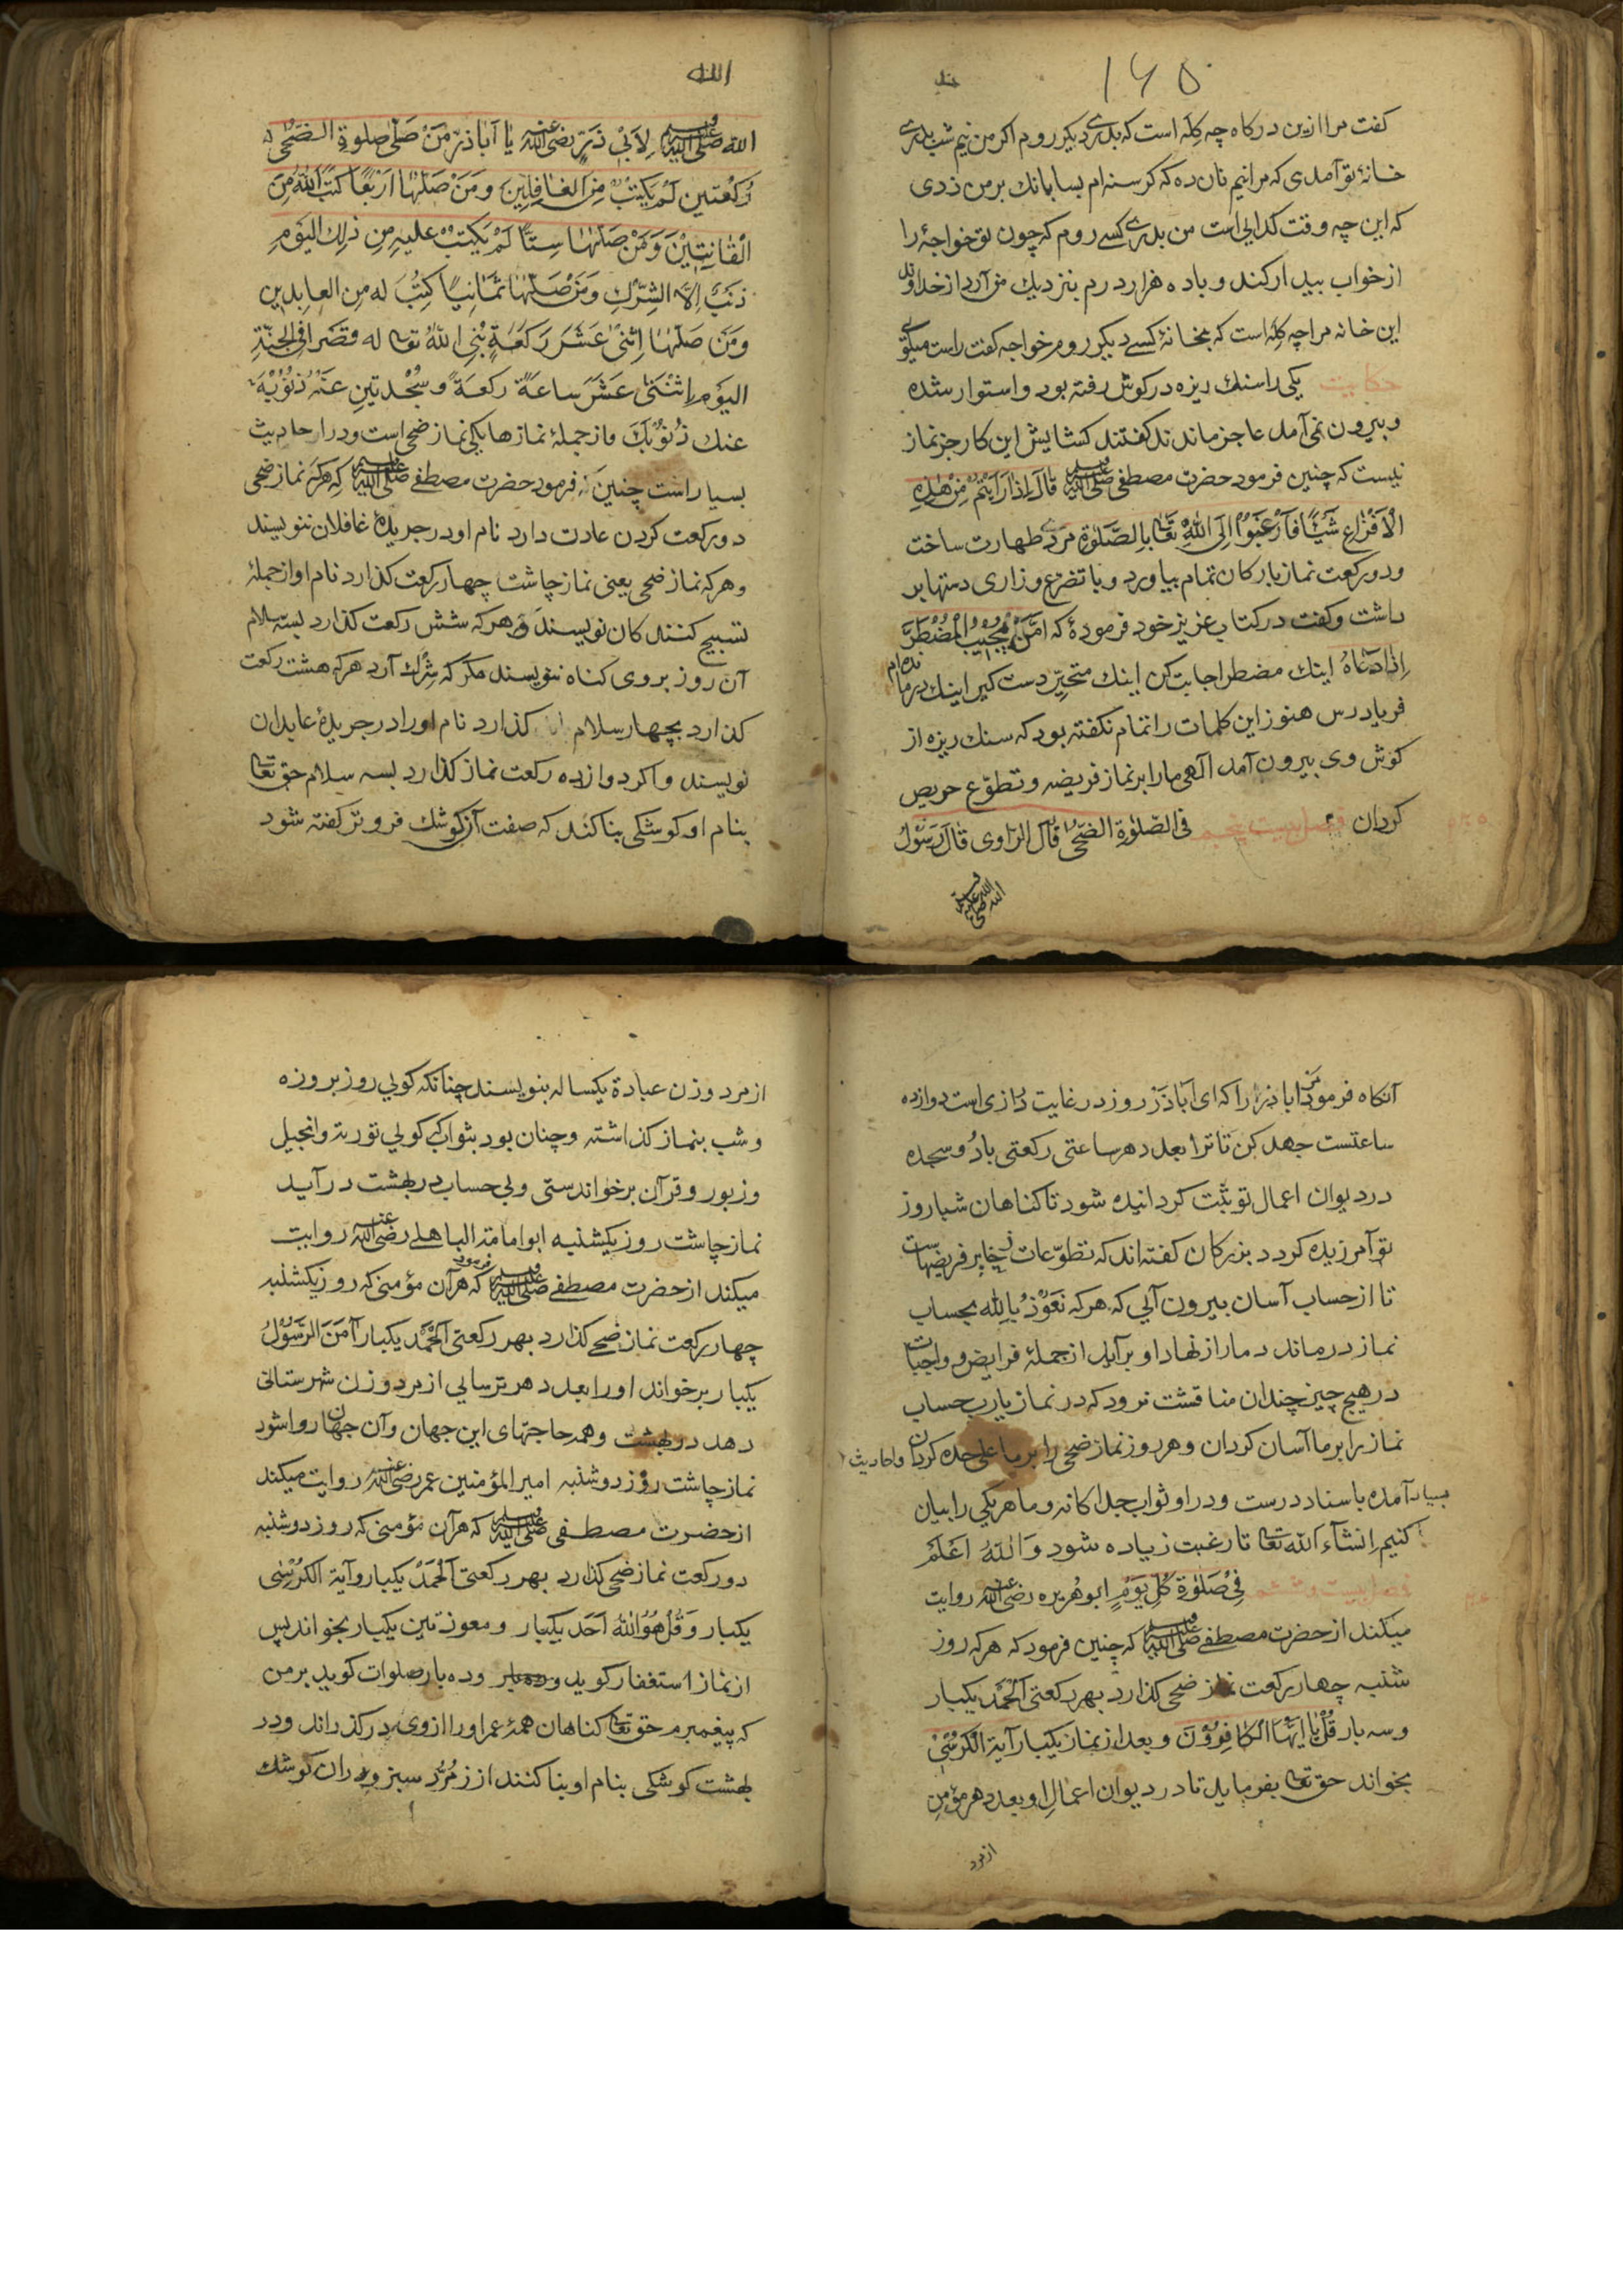 ۱۶۵
کفت مرا ازین درکاه چه کله است که بدری دیکر روم اکر من نیم شب بدری
خانهٔ تو آمدی که مرا نیم نان ده که کرسنه ام بسا بانك بر من زدی
که این چه وقت کدایی است من بدری کسے روم که چون تو خواجهٔ را
از خواب بیدار کند و با ده هزار درم بنزدیك من آرد از خداوند
این خانه مرا چه کله است که بخانهٔ کسے دیکر روم خواجه کفت راست میکویی
حکایت یکی را سنك ریزه در کوش رفته بود و استوار شده
و بیرون نمی آمد عاجز ماندند کفتند کشایش این کار جز نماز
نیست که چنین فرمود حضرت مصطفی ﷺ قَالَ اِذَا رَاَیْتُمْ مِنْ هٰذِهِ
الْاَفْزَاعِ شَیْئًا فَارْغَبُوْا اِلَی اللّٰهِ تَعَا بِالصَّلٰوةِ مردی طهارت ساخت
و دو رکعت نماز بارکان تمام بیاورد و با تضرّع و زاری دستها بر
داشت و کفت در کتاب عزیز خود فرمودهٔ که اَمَّنْ یُجِیْبُ الْمُضْطَرَّ
اِذَا دَعَاهُ اینك مضطر اجابت کن اینك متحیّر دست کیر اینك درمانده ام
فریاد رس هنوز این کلمات را تمام نکفته بود که سنك ریزه از
کوش وی بیرون آمد الٓهی ما را بر نماز فریضه و تطوّع حریص
کردان فصل بیست پنجم فی الصّلوة الضّحٰی قَالَ الرّاوی قَالَ رَسُوْلُ
الله صلی الله علیه وسلم
الله
الله ﷺ لِاَبِیْ ذَرٍّ رضی الله عنه یٰا اَبَا ذَرٍّ مَنْ صَلّٰی صلوةِ الضّحٰی
رَکْعَتین لَمْ یَکْتُبْ مِنَ الْغَافِلِیْنَ وَمَنْ صَلّٰهَا اَرْبَعًا کَتَبَ اللّٰهُ مِنَ
الْقَانِتِیْنَ وَمَنْ صَلّٰهَا سِتًّا لَمْ یَکْتُبْ علیهِ مِن ذٰلِكَ الیَوْمِ
ذَنْبٌ اِلَّا الشِّرْكَ وَمَنْ صَلّٰهَا ثَمَانِیًا کُتِبَ له مِن العٰابِدِین
وَمَنْ صَلّٰهَا اِثْنٰی عَشَرَ رَکْعَةً بُنِیَ اللّٰهُ تعا له قصرا فِی الجنّةِ
الیَوْم اِثْنَتٰی عَشَرَ ساعَةً رکعَةً وسُجْدتینِ عَنْهُ ذُنُوْبُهُ
عنك ذُنُوْبُكَ و از جملهٔ نمازها یکی نماز ضحی است و درا حادیث
بسیار است چنین فرمود حضرت مصطفے ﷺ که هرکه نماز ضحی
دو رکعت کردن عادت دارد نام او در جریدهٔ غافلان ننویسند
و هرکه نماز ضحی یعنی نماز چاشت چهار رکعت کذارد نام او از جملهٔ
تسبیح کنندکان نویسند و هرکه شش رکعت کذارد بسه سلام
آن روز بر وی کناه ننویسند مکر که شرك آرد هرکه هشت رکعت
کذارد بچهار سلام کذارد نام او را در جریدهٔ عابدان
نویسند و اکر دوازده رکعت نماز کذارد بسه سلام حق تعا
بنام او کوشکی بنا کند که صفت آن کوشك فروتر کفته شود
آنکاه فرمود مر ابا ذر را که ای اَبَاذَرّ روز در غایت درازی است دوازده
ساعتست جهد کن تا ترا بعدد هر ساعتی رکعتی بادُو سجده
در دیوان اعمال تو ثبت کردانیده شود تا کناهان شباروز
تو آمرزیده کردد بزرکان کفته اند که تطوّعات ذخایر فریضهاست
تا از حساب آسان بیرون آیی که هرکه نَعُوْذُ بِاللّٰه بحساب
نماز درماند دمار از نهاد او برآید از جملهٔ فرایض و واجبات
در هیچ چیز چندان مناقشت نرود که در نماز یارب حساب
نماز را بر ما آسان کردان و هر روز نماز ضحی را بر ما علی حده کردان و احادیث
بسیار آمده باسناد درست و درا و ثواب جداکانه و ما هریکی را بیان
کنیم اِنشآءَ اللّٰه تعا تا رغبت زیاده شود وَاللّٰهُ اَعْلَمُ
فصل بیست و ششم فِیْ صَلٰوةِ کُلِّ یَوْمٍ ابو هُریره رضی الله عنه روایت
میکند از حضرت مصطفے ﷺ که چنین فرمود که هرکه روز
شنبه چهار رکعت نماز ضحی کذارد بهر رکعتی الْحَمْد یکبار
و سه بار قُلْ یَا اَیُّهَا الْکَافِرُوْنَ و بعد از نماز یکبار آیة الْکُرْسِیْ
بخواند حق تعا بفرماید تا در دیوان اعمالِ او بعدد هر مؤمن
از مرد
از مرد و زن عبادة یکساله بنویسند چنانکه کویی روز بروزه
و شب بنماز کذاشته و چنان بود بثواب که کویی توریة و انجیل
و زبور و قرآن برخواندستی و بی حساب در بهشت درآید
نماز چاشت روز یکشنبه ابو امامة الباهلے رضی الله عنه روایت
میکند از حضرت مصطفے ﷺ فرمود که هر آن مؤمنی که روز یکشنبه
چهار رکعت نماز ضحے کذارد بهر رکعتی اَلْحَمْدُ یکبار آمَنَ الرَّسُوْلُ
یکبار برخواند او را بعدد هر ترسایی از مرد و زن شهرستانی
دهد در بهشت و همه حاجتهای این جهان و آن جهان روا شود
نماز چاشت روز دوشنبه امیر المؤمنین عمر رضی الله عنه روایت میکند
از حضرت مصطفی ﷺ که هر آن مؤمنی که روز دوشنبه
دو رکعت نماز ضحی کذارد بهر رکعتی اَلْحَمْدُ یکبار و آیة الکُرْسِی
یکبار و قُلْ هُوَ اللّٰهُ اَحَد یکبار و معوذتین یکبار بخواند پس
از نماز استغفار کوید و ده بار صلوات کوید بر من
که پیغمبرم حق تعا کناهان همهٔ عمر او را از وی درکذراند و در
بهشت کوشکی بنام او بنا کنند از زمُرّد سبز و دران کوشك